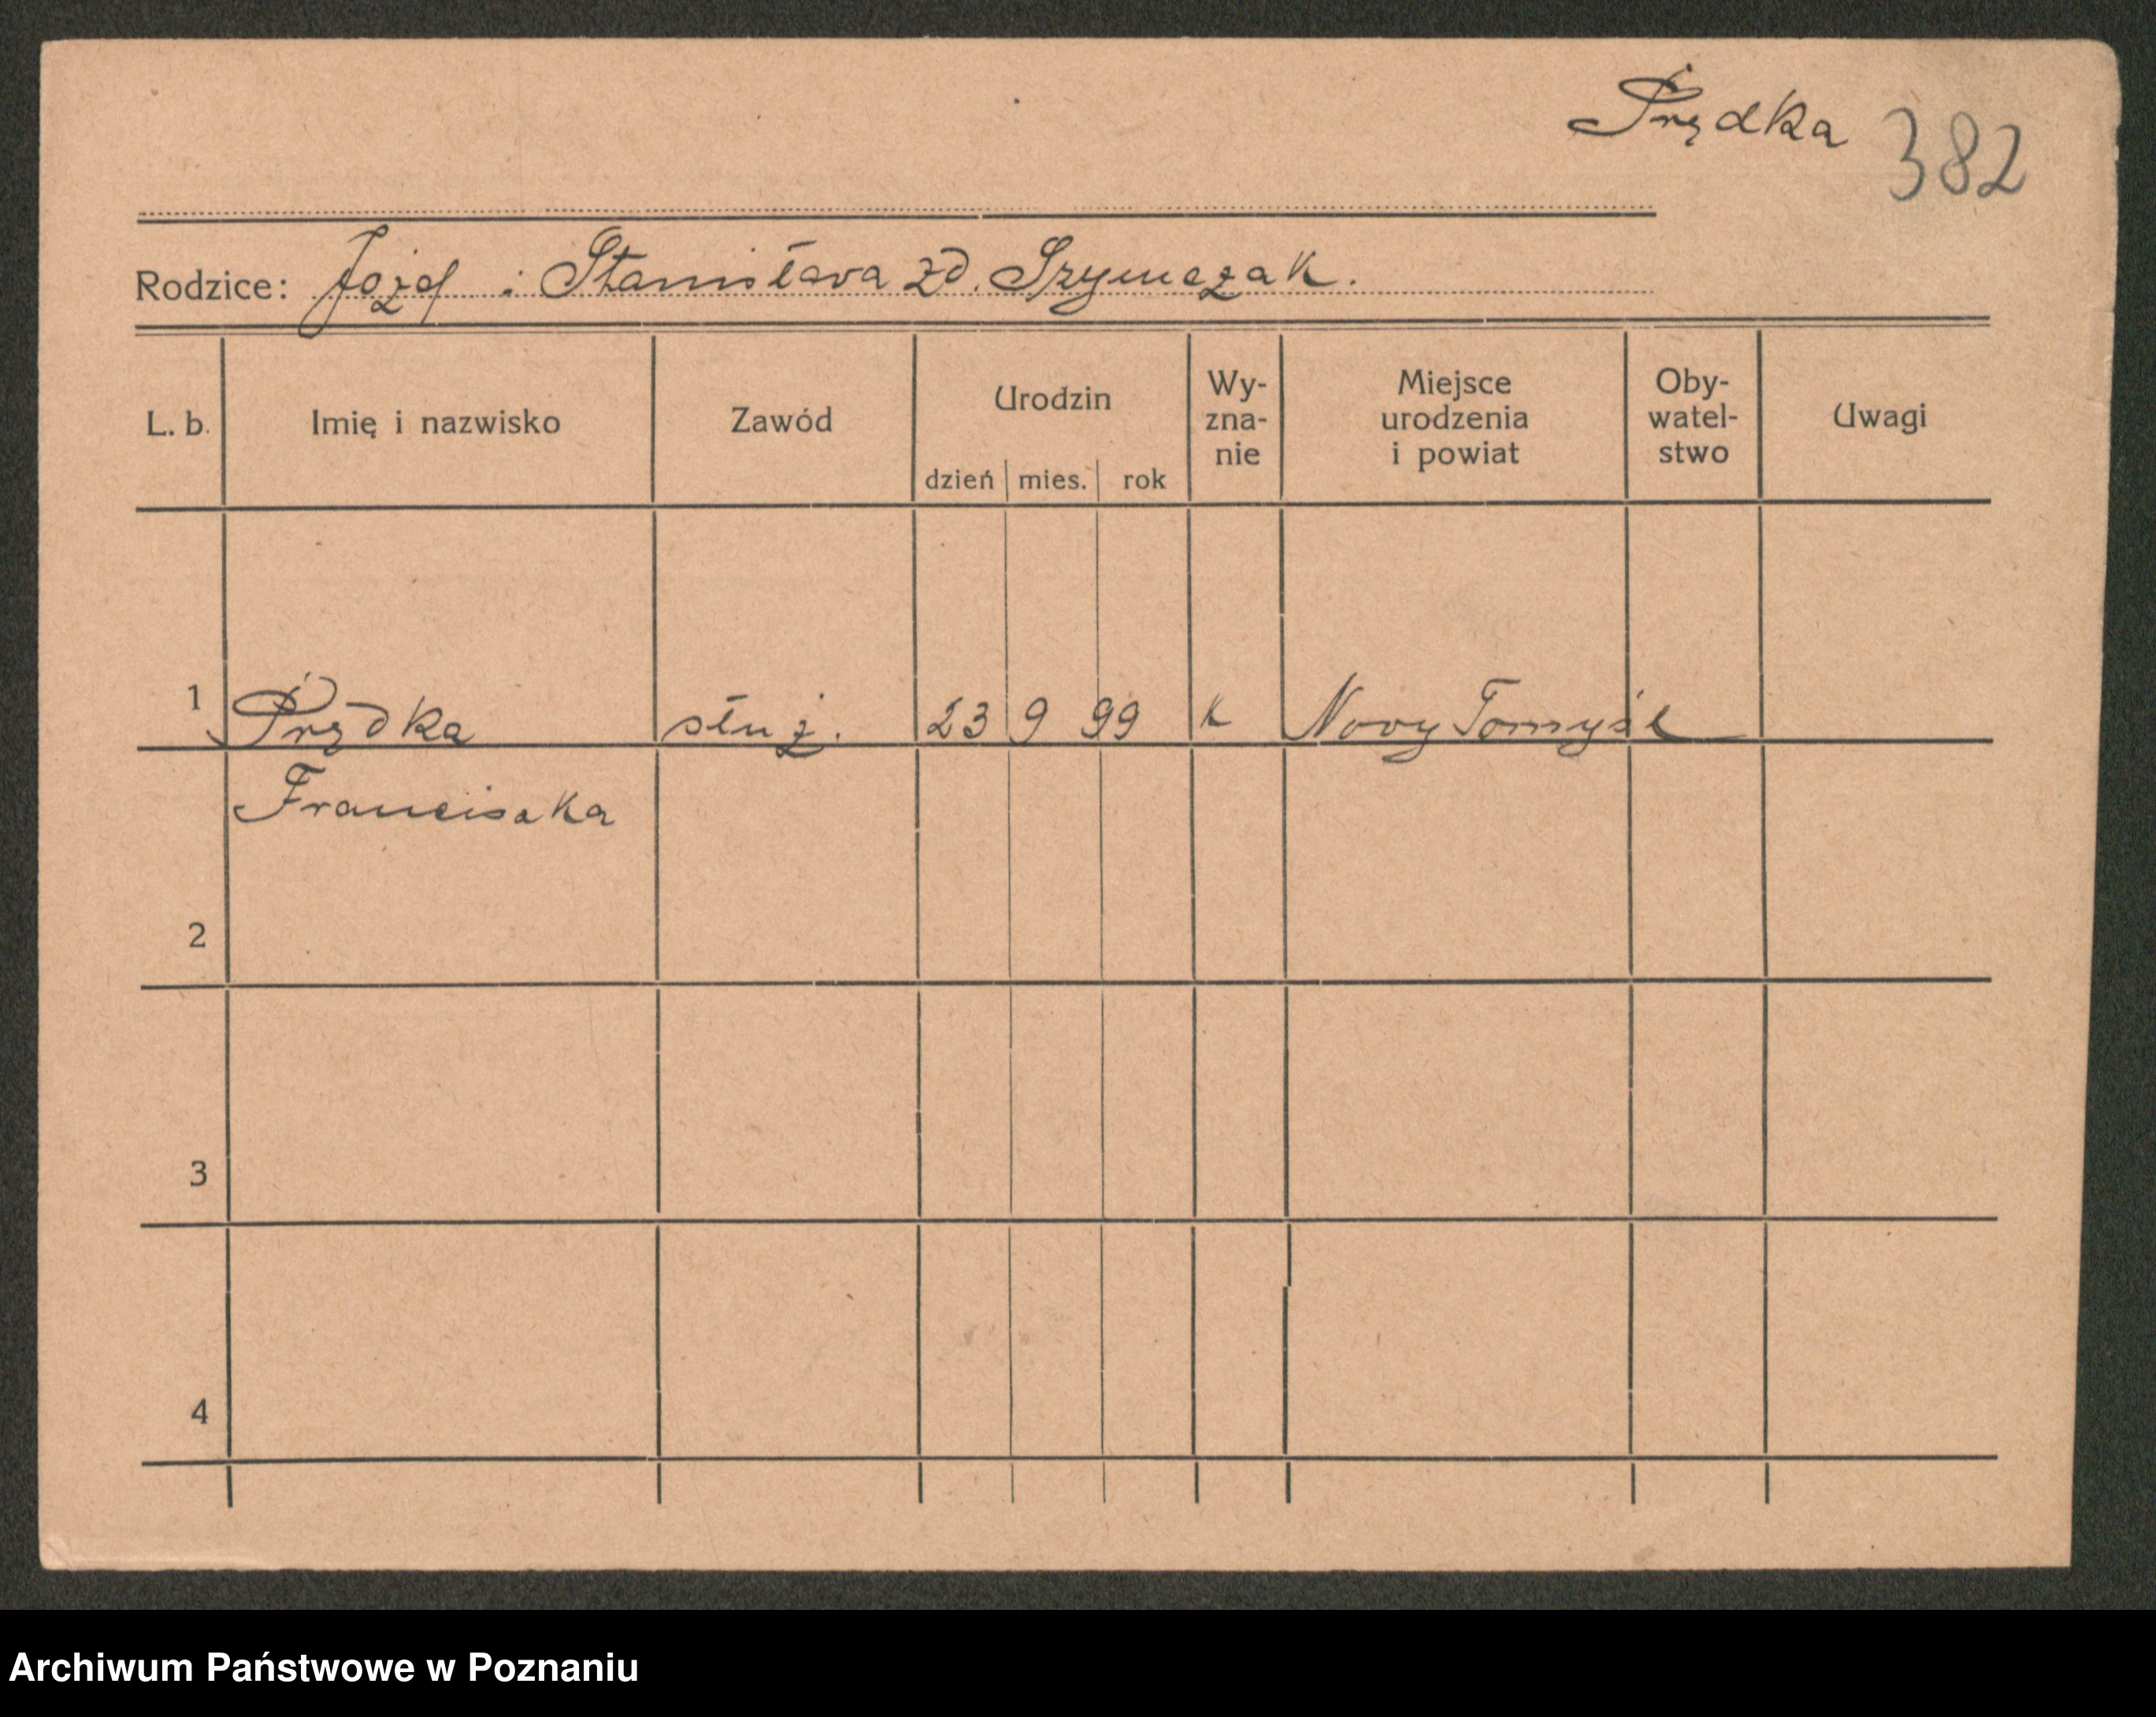 Prędka 382
Rodzice: Józef i Stanisława zd. Szymczak.
L. b. Imię i nazwisko Zawód Urodzin dzień mies. rok Wy-zna-nie Miejsce urodzenia i powiat Oby-watel-stwo Uwagi
1 Prędka służ. 23 9 99 k Nowy Tomyśl
Franciszka
2
3
4
Archiwum Państwowe w Poznaniu